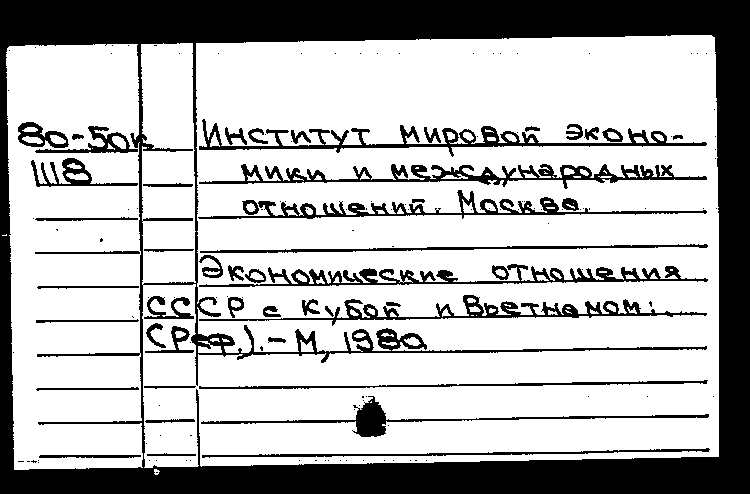 80-50к Институт мировой эконо-
1118 мики и международных
отношений. Москва.
Экономические отношения
СССР с Кубой и Вьетнамом:
(Реф.).-М, 1980